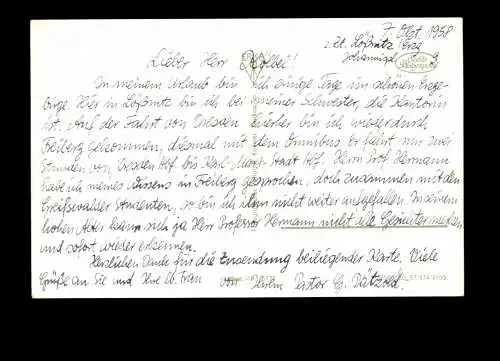 7. Okt. 1958
z. Zt. Lößnitz/Erzg
Johannisgasse
Lieber Herr Kölbel!
In meinem Urlaub bin ich einige Tage im schönen Erzge-
birge. Hier in Lößnitz bin ich bei meiner Schwester, die Kantorin
ist. Auf der Fahrt von Dresden hierher bin ich wieder durch
Freiberg gekommen, diesmal mit dem Omnibus. Er fährt nur zwei
Stunden von Dresden Hbf. bis Karl-Marx-Stadt Hbf. Herrn Prof. Hermann
habe ich meines Wissens in Freiberg gesprochen, doch zusammen mit den
Greifswalder Studenten, so bin ich ihm nicht weiter aufgefallen. In seinem
hohen Alter kann sich ja Herr Professor Hermann nicht alle Gesichter merken
und sofort wieder erkennen.
Herzlichen Dank für die Zusendung beiliegender Karte. Viele
Grüße an Sie und Ihre lb. Frau von Ihrem Pastor G. Pätzold.